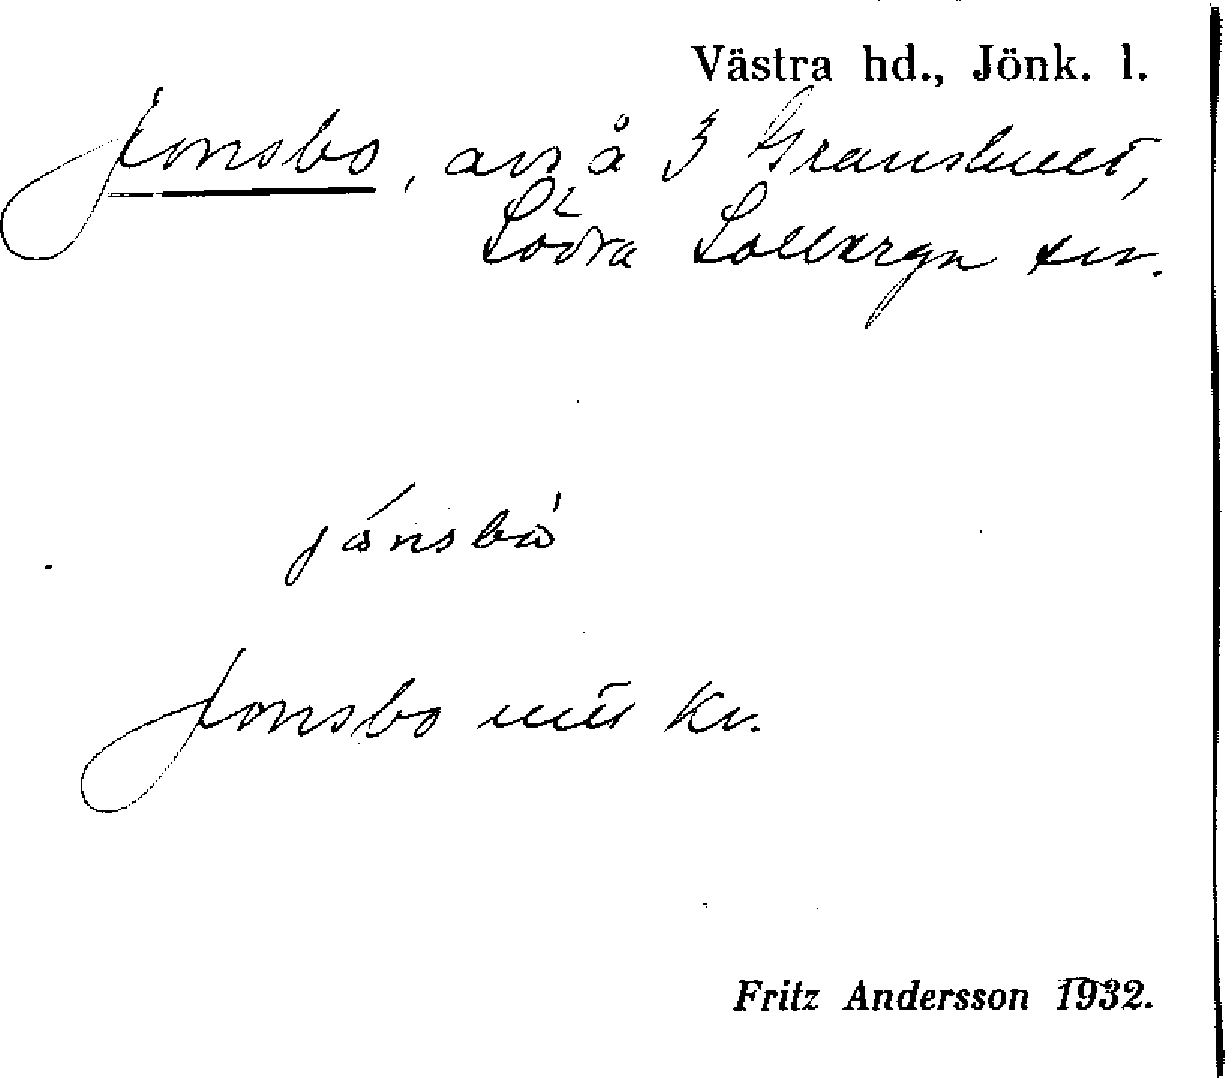 Västra hd., Jönk. l.
Jonsbo, avs å 3 Granshult,
Södra Solberga sn.
Jonsbo Kr.
Fritz Andersson 1932.